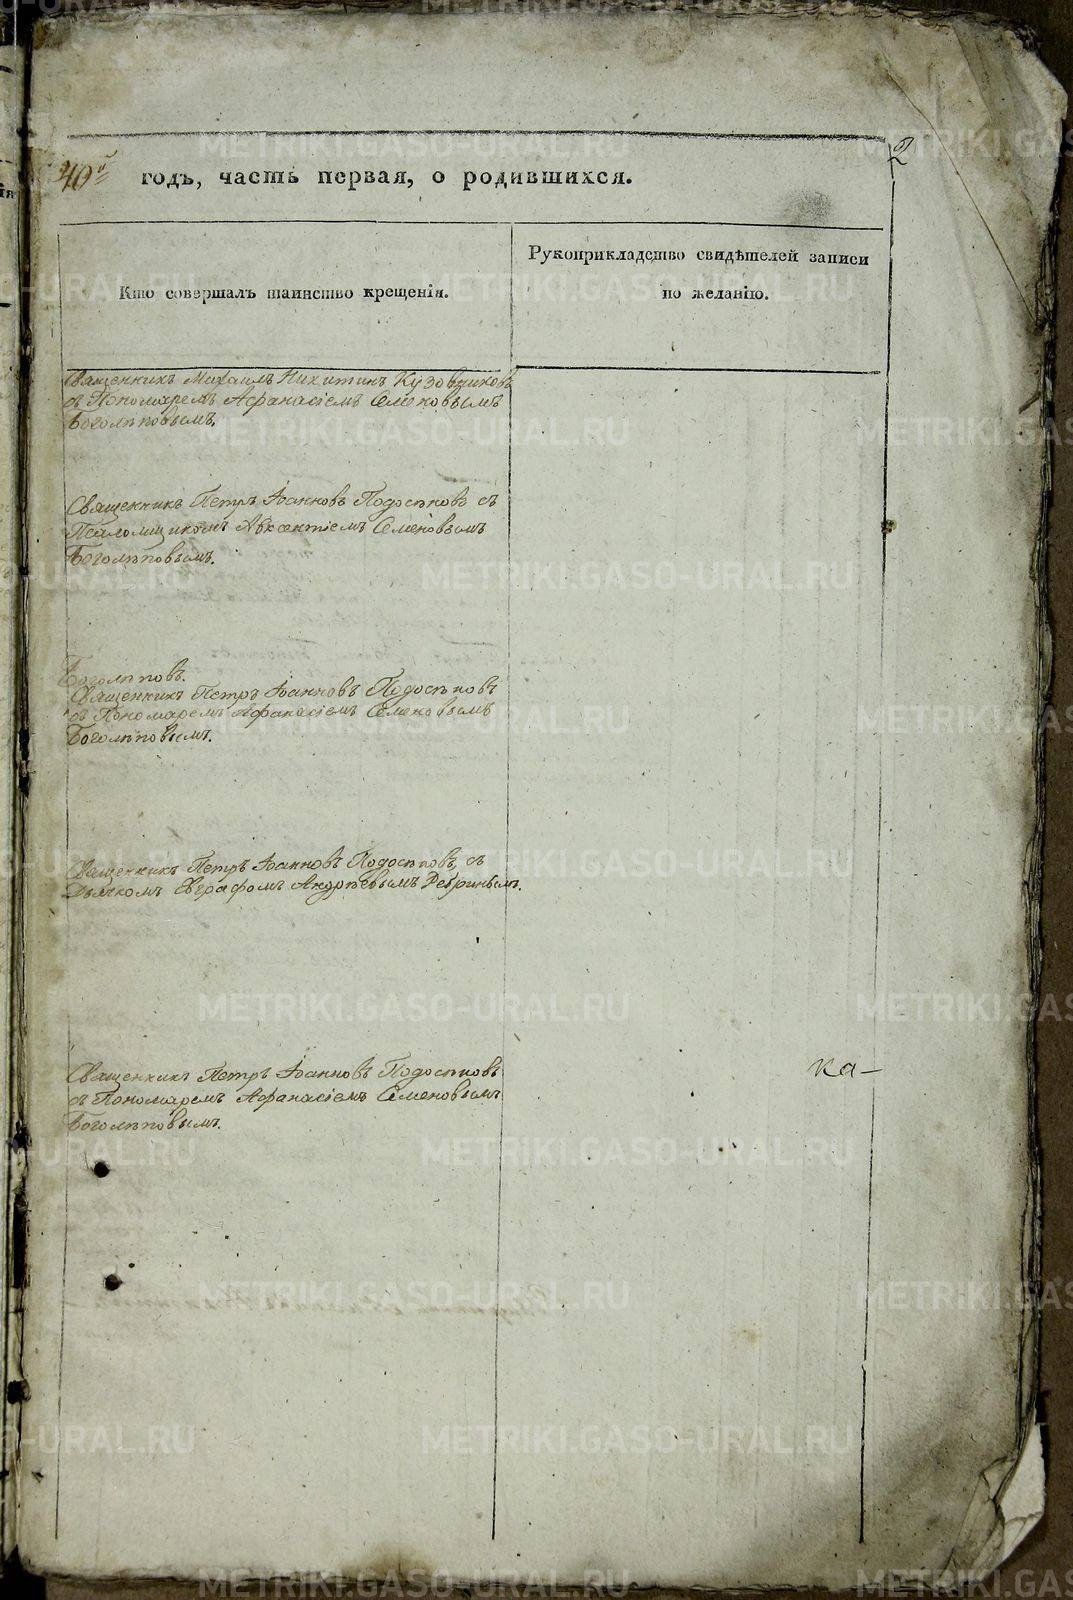 2
40й годъ, часть первая, о родившихся.
Кто совершалъ таинство крещенія.
Рукоприкладство свидѣтелей записи
по желанію.
Священникъ Михаилъ Никитинъ Кузовниковъ
съ Пономаремъ Афанасіемъ Семеновымъ
Боголѣповымъ.
Священникъ Петръ Іоанновъ Подосѣновъ съ
Псаломщикомъ Авксентіемъ Семеновымъ
Боголѣповымъ.
Боголѣповъ.
Священникъ Петръ Іоанновъ Подосѣновъ
съ Пономаремъ Афанасіемъ Семеновымъ
Боголѣповымъ.
Священникъ Петръ Іоанновъ Подосѣновъ, съ
Дьячкомъ Евграфомъ Андрѣевымъ Ребринымъ.
Священникъ Петръ Іоанновъ Подосѣновъ
съ Пономаремъ Афанасіемъ Семеновымъ
Боголѣповымъ.
ка-
METRIKI.GASO-URAL.RU